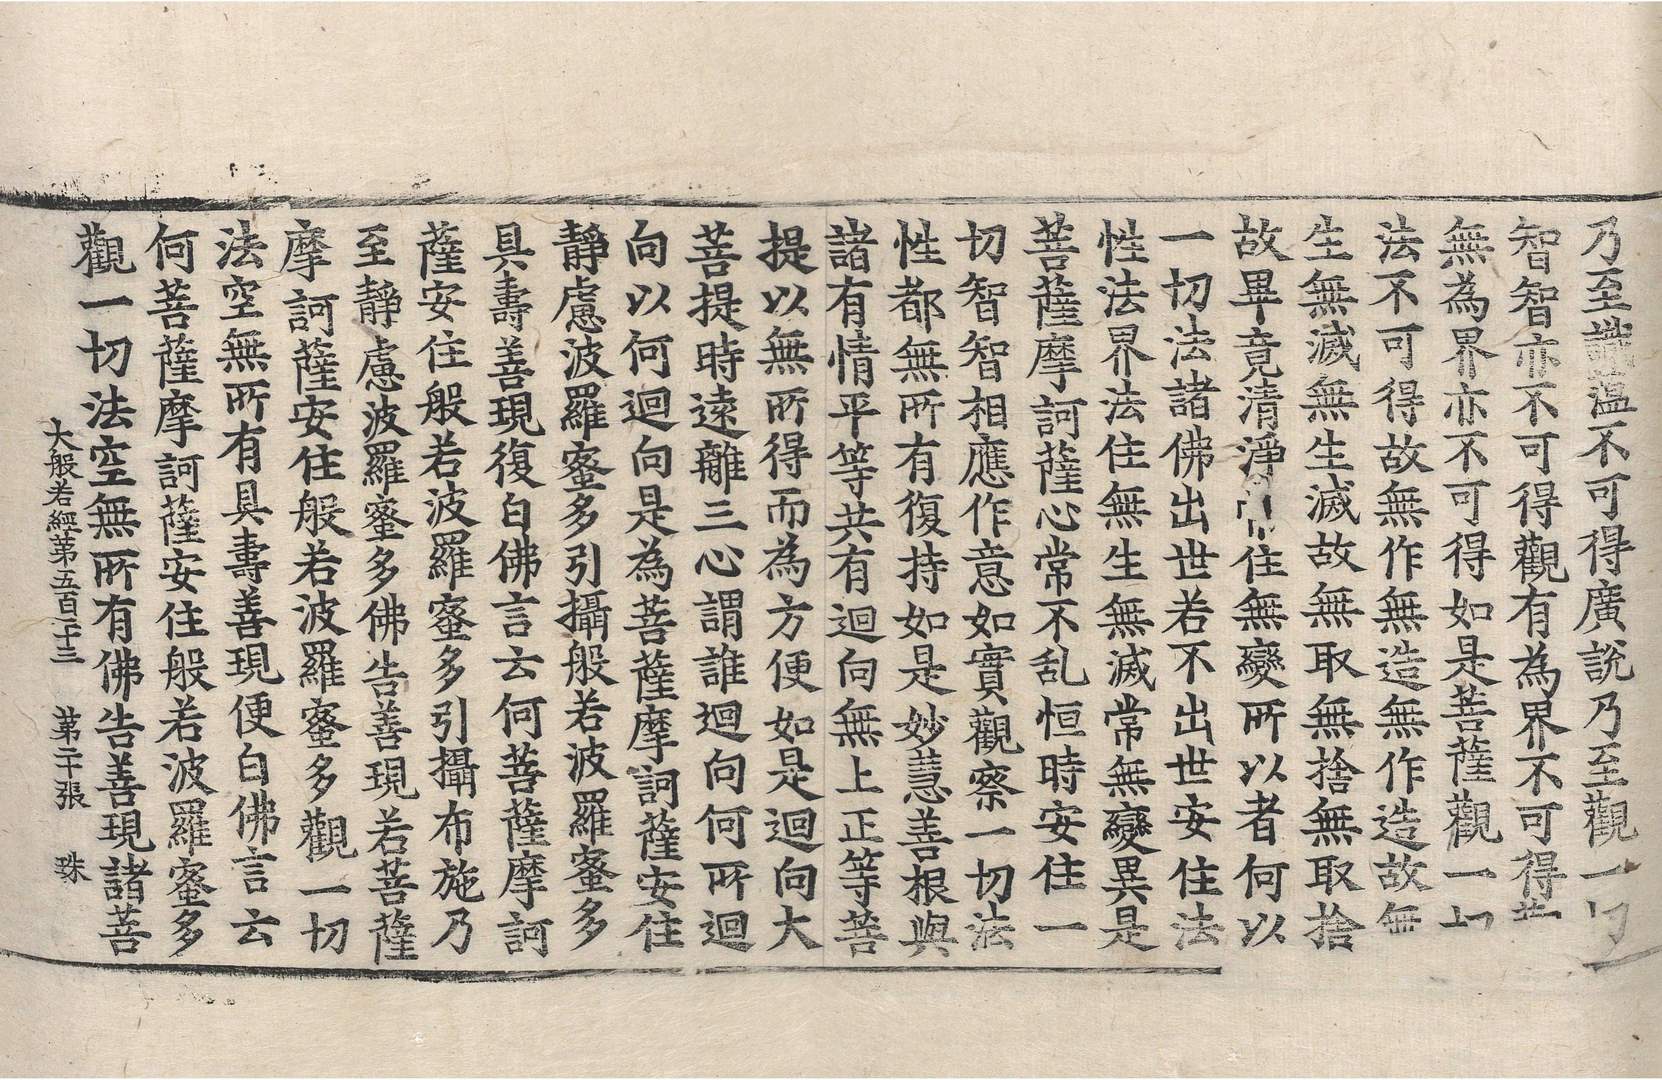 乃至識蘊不可得廣說乃至觀一切
智智亦不可得觀有為界不可得
無為界亦不可得如是菩薩觀一切
法不可得故無作無造無作造故無
生無滅無生滅故無取無捨無取捨
故畢竟清淨常住無變所以者何以
一切法諸佛出世若不出世安住法
性法界法住無生無滅常無變異是
菩薩摩訶薩心常不乱恒時安住一
切智智相應作意如實觀察一切法
性都無所有復持如是妙慧善根與
諸有情平等共有迴向無上正等菩
提以無所得而為方便如是迴向大
菩提時遠離三心謂誰迴向何所迴
向以何迴向是為菩薩摩訶薩安住
靜慮波羅蜜多引攝般若波羅蜜多
具壽善現復白佛言云何菩薩摩訶
薩安住般若波羅蜜多引攝布施乃
至靜慮波羅蜜多佛告善現若菩薩
摩訶薩安住般若波羅蜜多觀一切
法空無所有具壽善現便白佛言云
何菩薩摩訶薩安住般若波羅蜜多
觀一切法空無所有佛告善現諸菩
大般若經第五百二十三 第二十張 珠